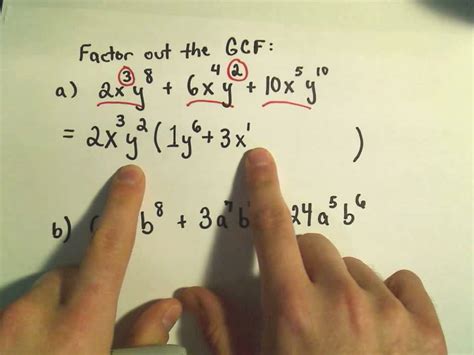 Factor out the GCF:
a) 2x³y⁸ + 6x⁴y² + 10x⁵y¹⁰
= 2x³y² ( 1y⁶ + 3x¹ )
b) ( b⁸ + 3a⁷b 24a⁵b⁶